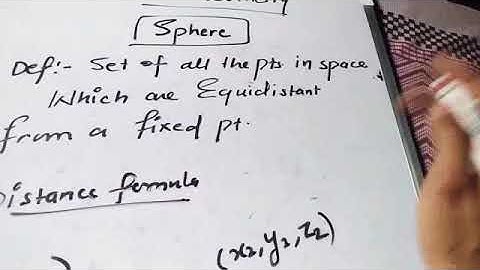 Sphere
Def:- Set of all the pts in space
Which are Equidistant
from a fixed pt.
Distance formula
(x₂, y₂, z₂)